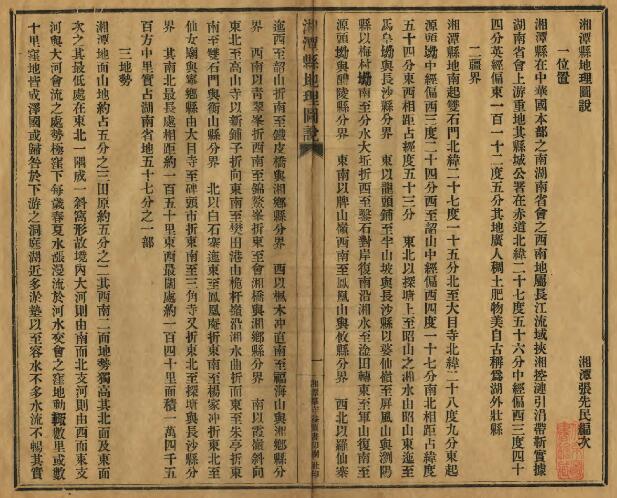 湘潭縣地理圖說
湘潭張先民編次
一位置
湘潭縣在中華國本部之南湖南省會之西南地屬長江流域挾湘控漣引涓帶靳實據
湖南省會上游重地其縣城公署在赤道北緯二十七度五十六分中經偏西三度四十
四分英經偏東一百一十二度五分其地廣人稠土肥物美自古稱爲湖外壯縣
二疆界
湘潭縣地南起雙石門北緯二十七度一十五分北至大目寺北緯二十八度九分東起
源頭坳中經偏西三度二十四分西至韶山中經偏西四度一十七分南北相距占緯度
五十四分東西相距占經度五十三分 東北以探塘上至昭山之湘水山昭山東迤至
馬皂坳與長沙縣分界 東以龍頭鋪至半山坡與長沙縣以婆仙嶺至屏風山與瀏陽
縣以梅村坳南至分水大坵折西至鑿石對岸復南沿湘水至淦田轉東至軍山復南至
源頭坳與醴陵縣分界 東南以牌山嶺西南至鳳凰山與攸縣分界 西北以羅仙寨
湘潭縣地理圖說
一
迤西至韶山折南至鐵皮橋與湘鄉縣分界 西以楓木冲直南至福海山與湘鄉縣分
界 西南以青翠峯折西南至錦鰲峯折東至會湘橋與湘鄉縣分界 南以霞嶺斜向
東北至高山寺以新鋪子折向東南至樊田港由桅杆嶺沿湘水曲折而東至朱亭折東
南至雙石門與衡山縣分界 北以白石寨迤東至鳳凰庵折東南至楊家冲折東北至
仙女廟與寧鄉縣由大目寺至碑頭市折東南至三角寺又折東北至探塘與長沙縣分
界 其南北最長處相距約一百五十里東西最闊處約一百四十里面積一萬四千五
百方中里實占湖南省地五十七分之一部
三地勢
湘潭地面山地約占五分之三田原約五分之二其西南二面地勢獨高其北面及東面
次之其最低處在東北一隅成一斜窩形故境內大河則由南而北支河則由西而東支
河與大河會流之處勢極窪下每歲春夏水漲漫流於河水交會之窪地動輒數里或數
十里窪地皆成澤國或歸咎於下游之洞庭湖近多淤墊以至容水不多水流不暢其實